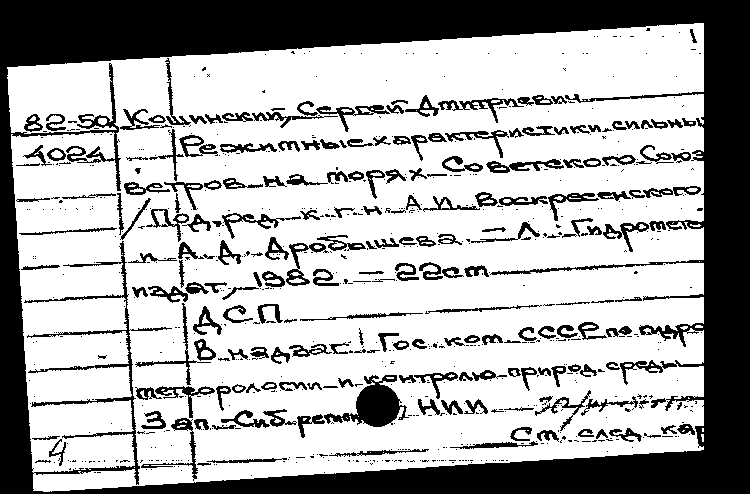 1
82-50 Кошинский, Сергей Дмитриевич
4024 Режимные характеристики сильны
ветров на морях Советского Союз
/ Под ред. к.г.н. А.И. Воскресенского
и А.Д. Дробышева. – Л.: Гидромете
издат, 1982. – 22 см
ДСП
В надзаг: Гос. ком. СССР по гидро
метеорологии и контролю природ. среды
Зап.-Сиб. регион НИИ
См. след. кар
4